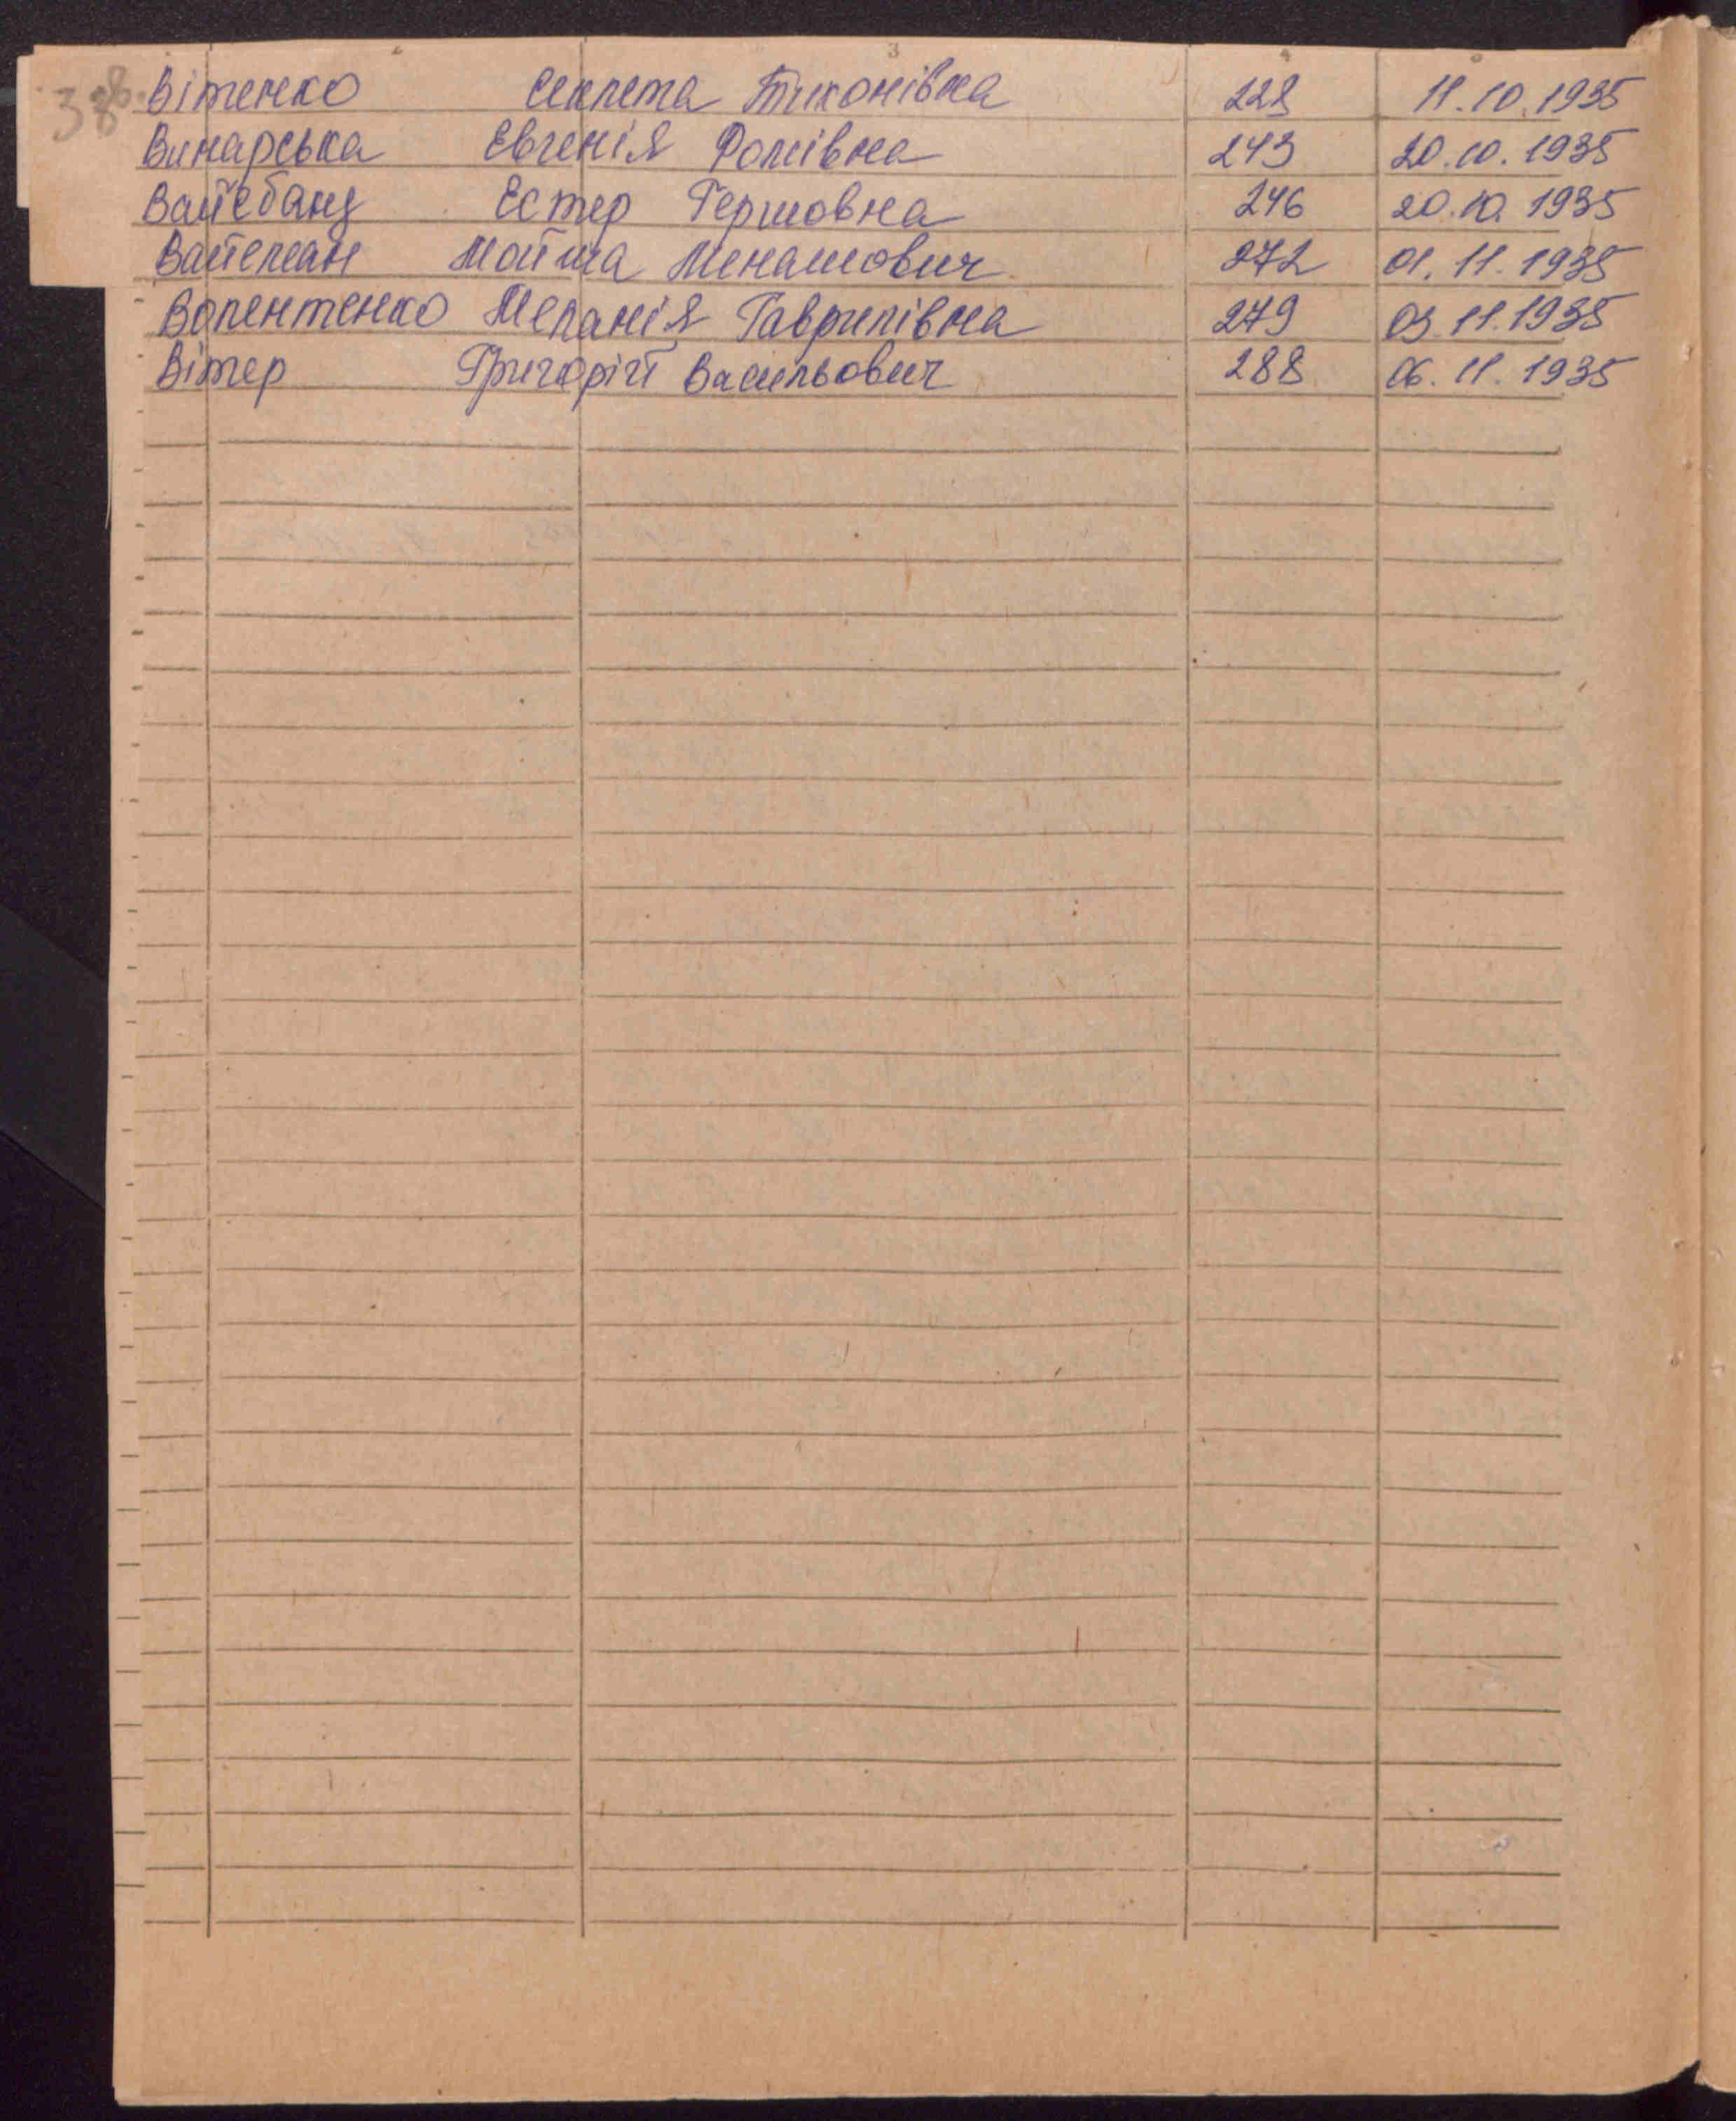 3 4
Вітенко Секлета Тихонівна 228 11.10.1935
Винарська Евгенія Фомівна 243 20.10.1935
Естер Гершовна 246 20.10.1935
Вайсман Мойша Менашович 272 01.11.1935
Волентенко Меланія Гаврилівна 279 03.11.1935
Вітер Григорій Васильович 288 06.11.1935